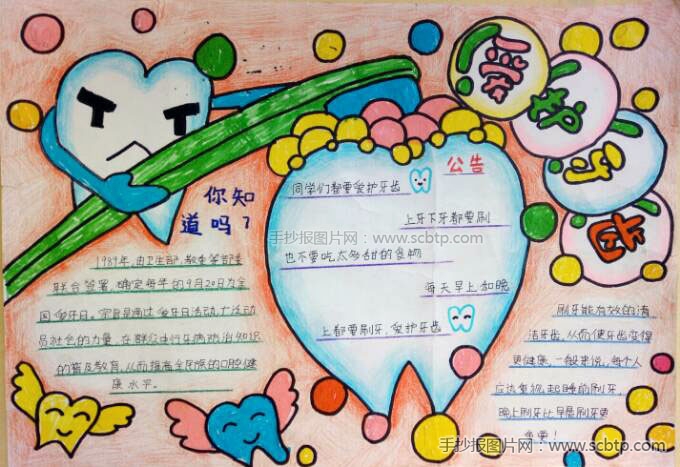 爱护牙齿
你知
道吗？
1989年,由卫生部、教委等部委
联合签署,确定每年的9月20日为全
国爱牙日。宗旨是通过爱牙日活动,广泛动
员社会的力量,在群众中行牙病防治知识
的普及教育,从而提高全民族的口腔健
康水平。
公告
同学们都要爱护牙齿
上牙下牙都要刷
也不要吃太多甜的食物
每天早上和晚
上都要刷牙,爱护牙齿
刷牙能有效的清
洁牙齿,从而使牙齿变得
更健康,一般来说,每个人
应该重视起睡前刷牙,
晚上刷牙比早晨刷牙更
重要!
手抄报图片网:www.scbtp.com
手抄报图片网:www.scbtp.com